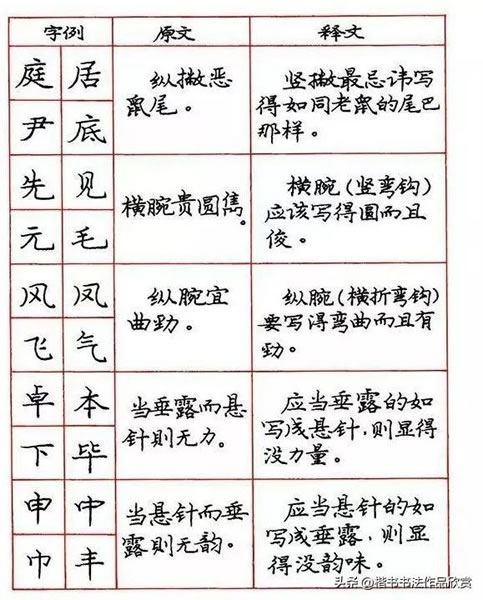 字例 原文 释文
庭 居
尹 底
纵撇恶
鼠尾。
竖撇最忌讳写
得如同老鼠的尾巴
那样。
先 见
元 毛
横腕贵圆隽。
横腕(竖弯钩)
应该写得圆而且
俊。
风 凤
飞 气
纵腕宜
曲劲。
纵腕(横折弯钩)
要写得弯曲而且有
劲。
卓 本
下 毕
当垂露而悬
针则无力。
应当垂露的如
写成悬针,则显得
没力量。
申 中
巾 丰
当悬针而垂
露则无韵。
应当悬针的如
写成垂露,则显
得没韵味。
头条@楷书书法作品欣赏